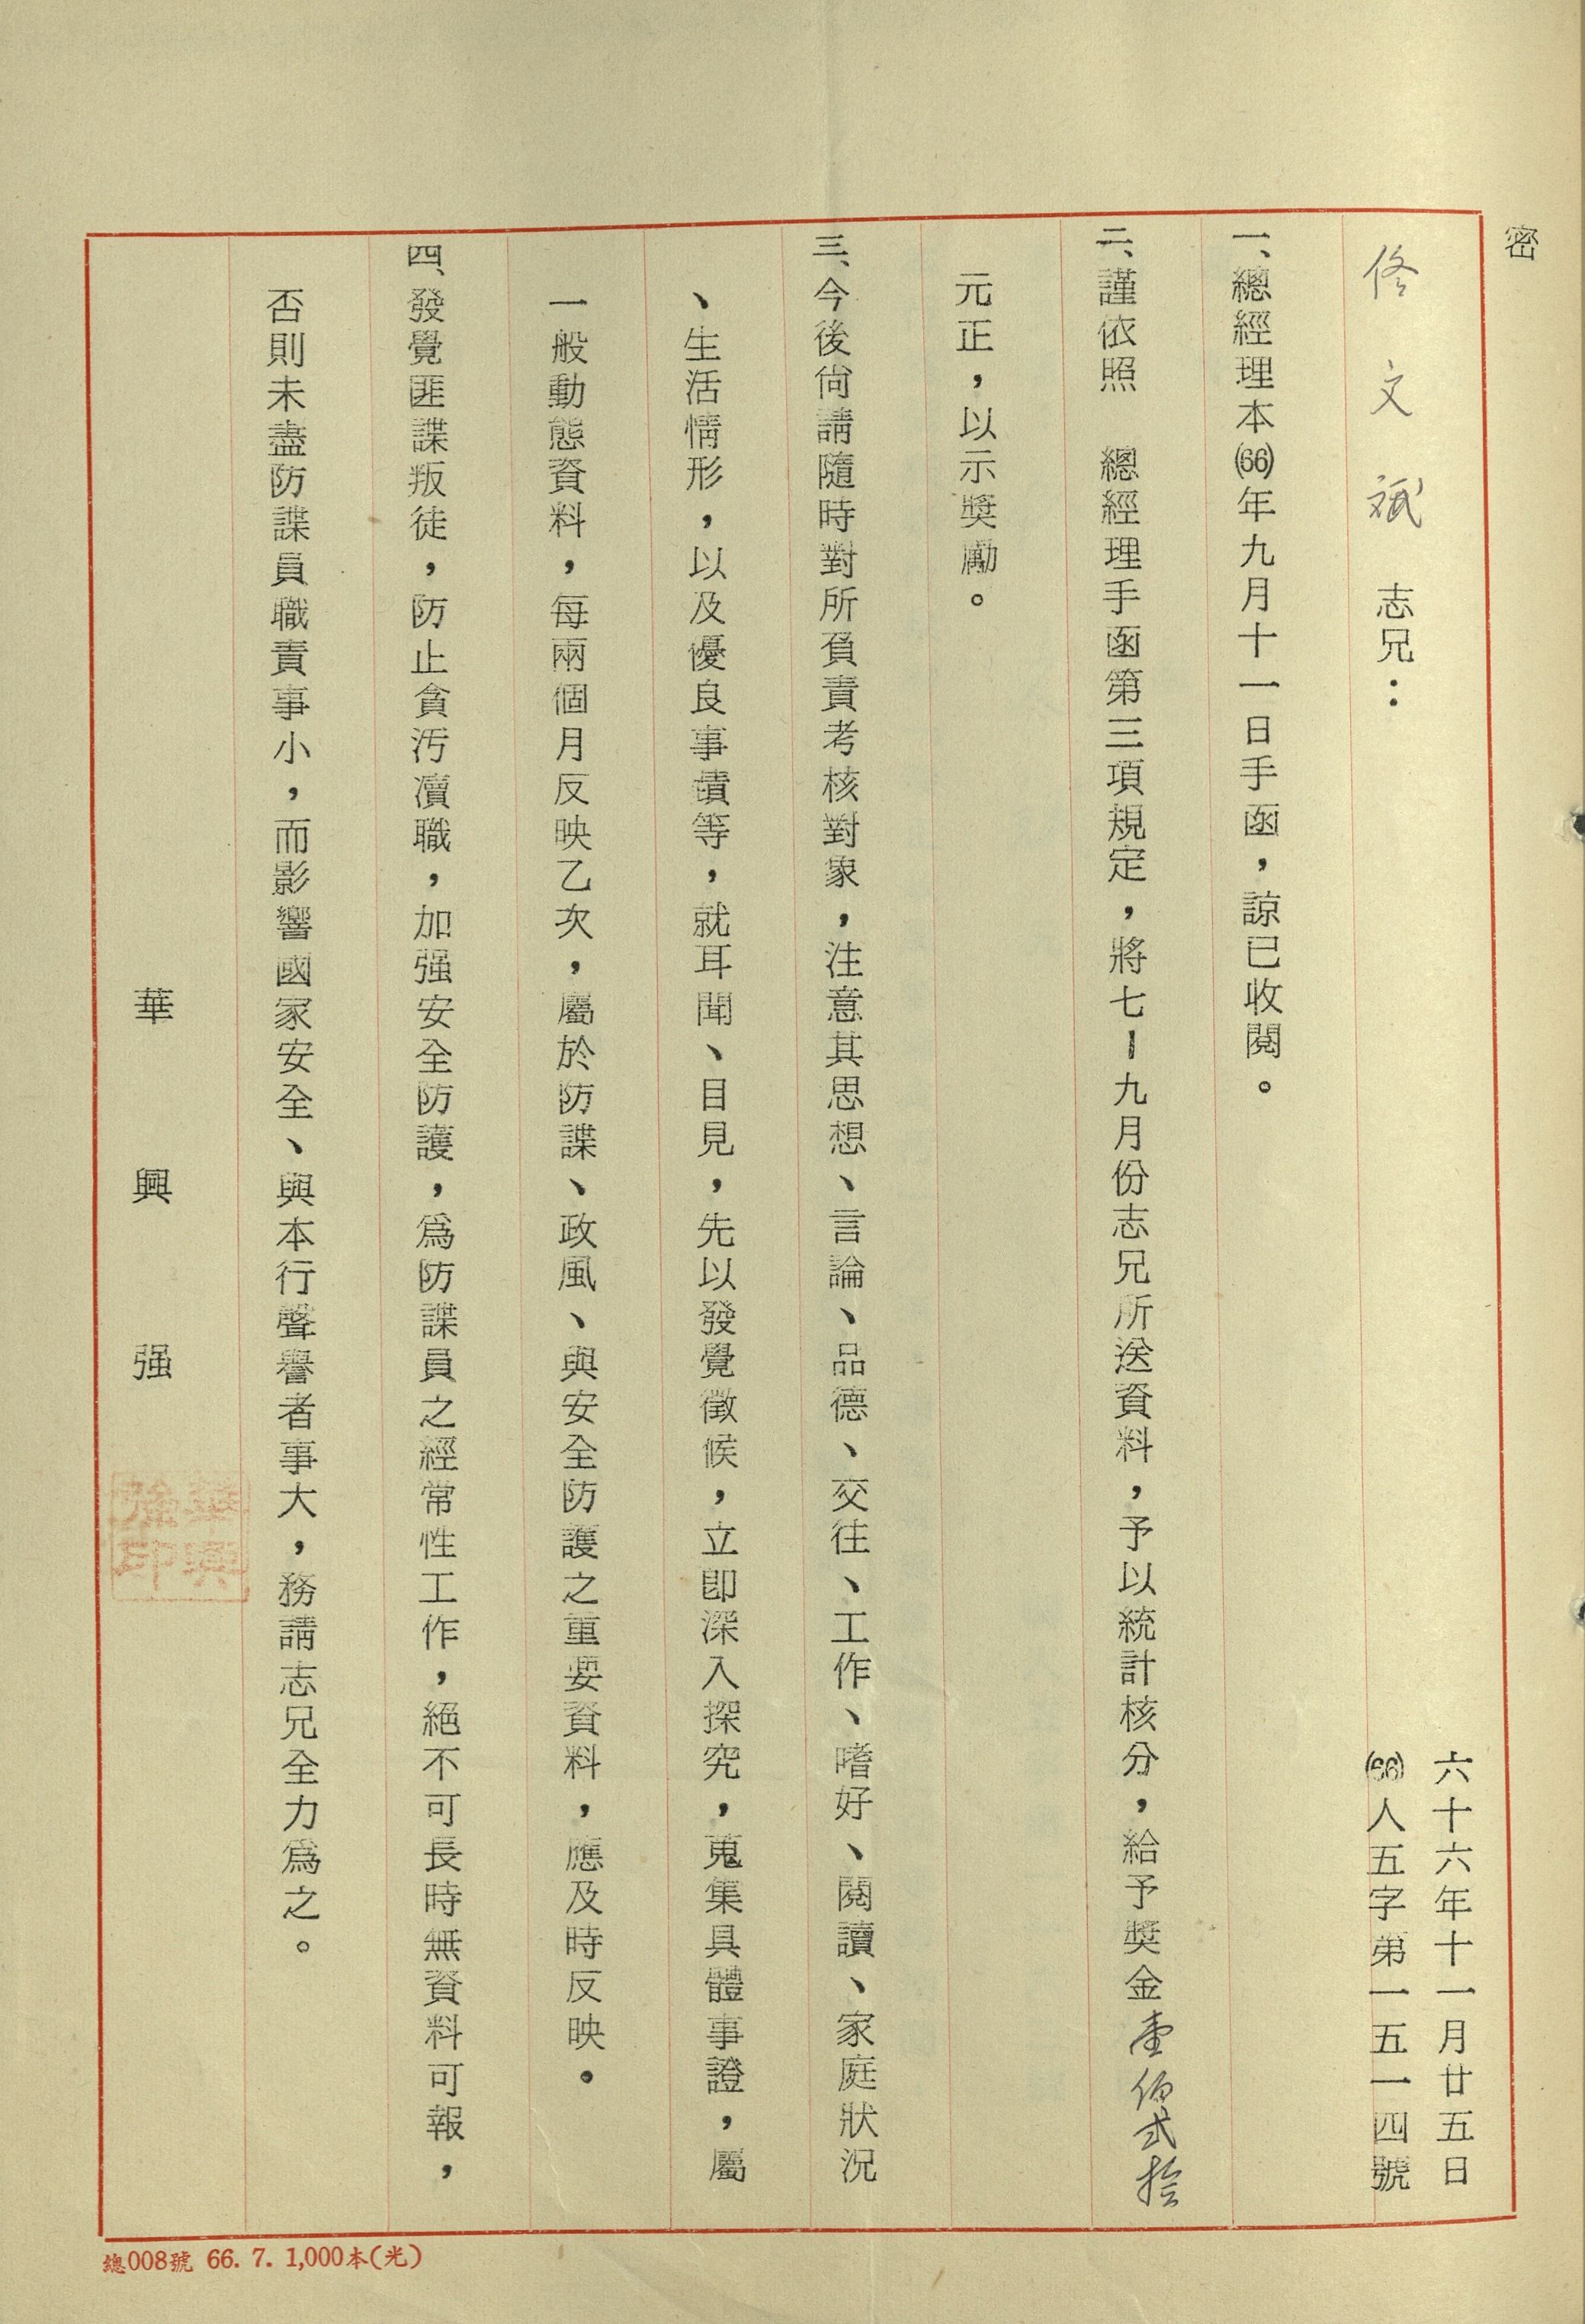 密
六十六年十一月廿五日
(66)人五字第一五一四號
佟文斌志兄：
一、總經理本(66)年九月十一日手函，諒已收閱。
二、謹依照　總經理手函第三項規定，將七－九月份志兄所送資料，予以統計核分，給予獎金壹佰弍拾
元正，以示獎勵。
三、今後尚請隨時對所負責考核對象，注意其思想、言論、品德、交往、工作、嗜好、閱讀、家庭狀況
、生活情形，以及優良事蹟等，就耳聞、目見，先以發覺徵候，立即深入探究，蒐集具體事證，屬
一般動態資料，每兩個月反映乙次，屬於防諜、政風、與安全防護之重要資料，應及時反映。
四、發覺匪諜叛徒，防止貪污瀆職，加强安全防護，爲防諜員之經常性工作，絕不可長時無資料可報，
否則未盡防諜員職責事小，而影響國家安全、與本行聲譽者事大，務請志兄全力爲之。
華興强
華興強印
總008號 66. 7. 1,000本(光)